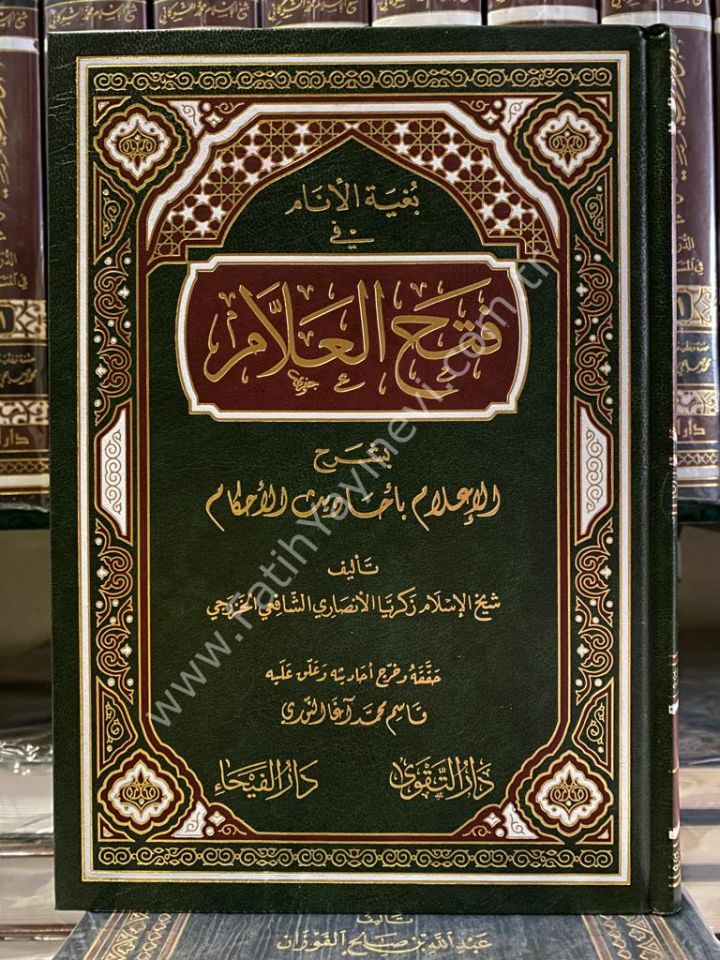 بُغية الأنام
في
فتح العلّام
بشرح
الإعلام بأحاديث الأحكام
تأليف
شيخ الإسلام زكريا الأنصاري الشافعي الخزرجي
حققه وخرج أحاديثه وعلق عليه
قاسم محمد آغا النوري
دار التقوى
دار الفيحاء
www.FatihYayinevi.com.tr
تأليف
عبد الله بن صالح الفوزان